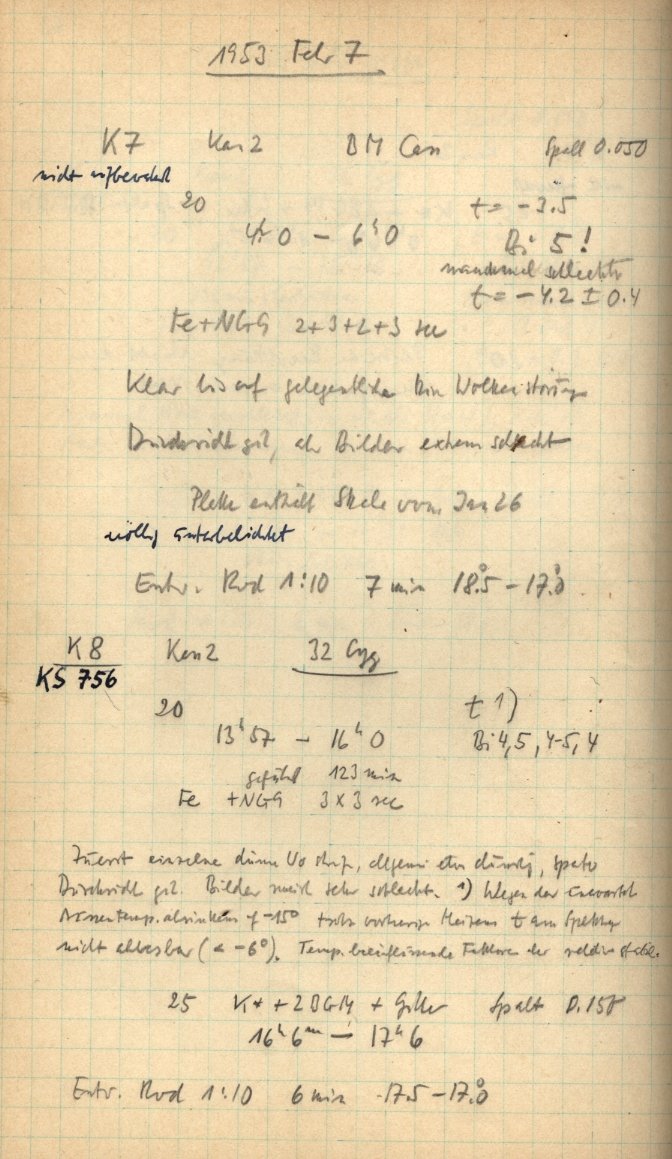 1953 Febr 7
K7 Kam 2 BM Cass Spalt 0.050
nicht aufbewahrt
20 t = -3.5
4h 0 – 6h 0 Bi 5!
manchmal schlechter
t = -4.2 ± 0.4
Fe+NG9 2+3+2+3 sec
Klar bis auf gelegentliche Wolkenstörungen
Durchsicht gut, aber Bilder extrem schlecht
Platte enthält Skala vom Jan 26
völlig unterbelichtet
Entw. Rod 1:10 7 min 18.5 – 17.0
K8 Kam 2 32 Cyg
KS 756
20 t 1)
13h 57 – 16h 0 Bi 4, 5, 4-5, 4
123 min
Fe + NG9 3 x 3 sec
Zuerst einzelne dünne, etwas dunstig, später
Durchsicht gut. Bilder meist sehr schlecht. 1) Wegen der
Aussentemp. absinkens auf -15° trotz t am
nicht ablesbar (< -6°). Temp. beeinflussende Faktoren aber relativ stabil.
25 K+ + 2BG14 + Gitter Spalt 0.150
16h 6m – 17h 6
Entw. Rod 1:10 6 min 17.5 – 17.0